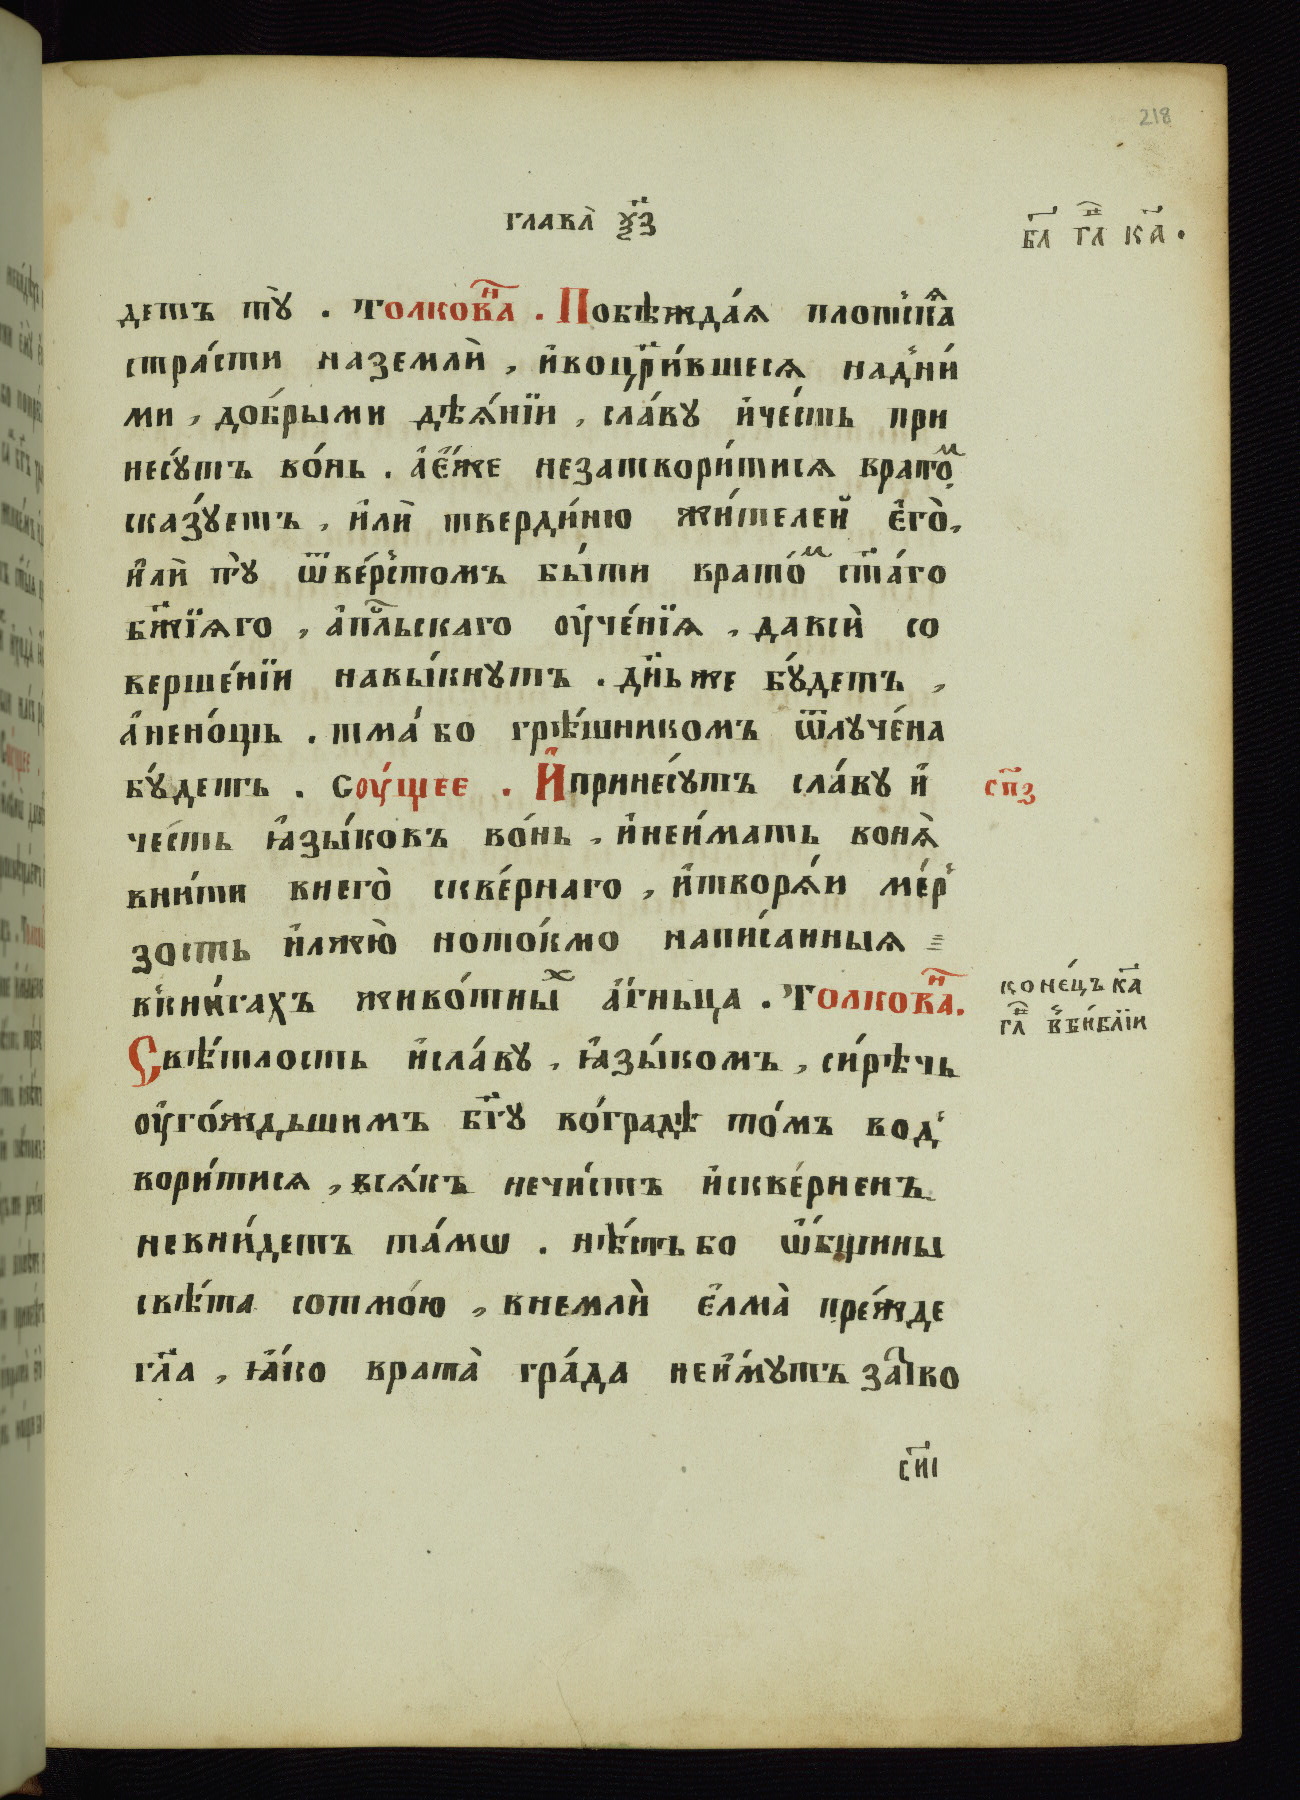 218
глава̀ ѯ҃з
бл҃ гл҃ ка҃ .
детъ тꙋ̀ . Толкова́нⷩ҇їа . Побѣжда́ѧ плотскі́ѧ
стра́сти наземлѝ , и҆воцр҃и́вшесѧ надни́
ми , до́брыми дѣѧ́нїи , сла́вꙋ и҆че́сть при
несꙋ́тъ во́нь . а҆є҆́же незатвори́тисѧ врато́ⷨ
сказꙋ́етъ , и҆лѝ тверди́ню жи́телей є҆гѡ̀ ,
и҆лѝ тꙋ̀ ѿве́рстомъ бы́ти врато́ⷨ ст҃а́го
бж҃їѧго , а҆пⷭ҇льскаго ᲂу҆че́нїѧ , давсѝ со
верше́нїи навы́кнꙋтъ . дн҃ьже бꙋ́детъ ,
а҆нено́щь . тма́ бо грѣ́шникомъ ѿлꙋче́на
бꙋ́детъ . Сꙋ́щее . И҆принесꙋ́тъ сла́вꙋ и҆
сп҃з
че́сть ꙗ҆зы́ковъ во́нь , и҆неи́мать вонѧ̀
вни́ти внегѡ̀ скве́рнаго , и҆творѧ́и ме́р
зость и҆лжю̀ ното́кмо напи́санныѧ
вкни́гахъ живо́тныⷯ а҆́гньца . Толкова́нⷩ҇їа .
коне́цъ ка҃
гл҃ в би́блїи
Свѣ́тлость и҆сла́вꙋ , ꙗ҆зы́комъ , си́рѣчь
ᲂу҆го́ждьшимъ бг҃ꙋ во́градѣ то́мъ вод
вори́тисѧ , всѧ́къ нечи́стъ и҆скве́рненъ
невни́детъ та́мѡ . нѣ́сть бо ѡ҆́бщины
свѣ́та сотмо́ю , внемлѝ є҆лма̀ пре́жде
гл҃а , ꙗ҆́ко врата̀ гра́да неи҆́мꙋтъ за́тво
си҃і